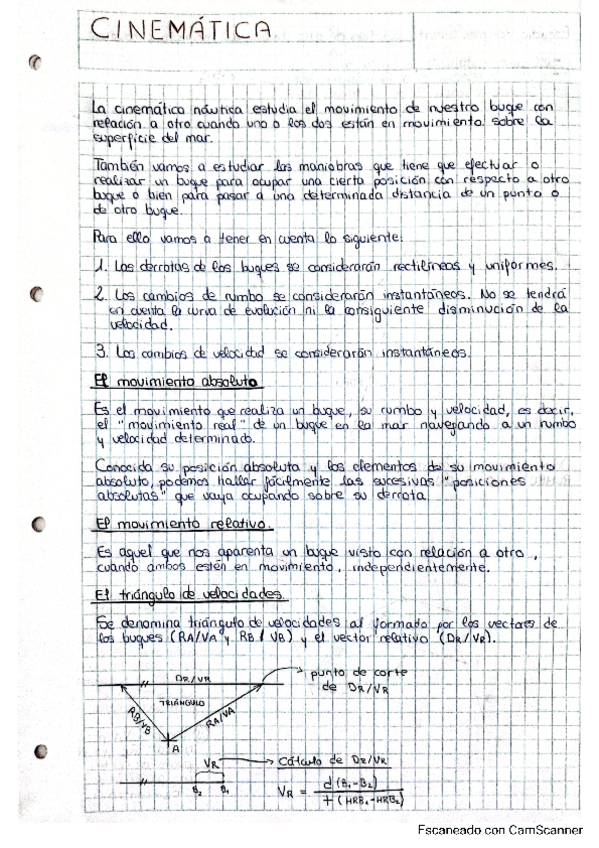 CINEMÁTICA
La cinemática náutica estudia el movimiento de nuestro buque con
relación a otro cuando uno o los dos están en movimiento. sobre la
superficie del mar.
También vamos a estudiar las maniobras que tiene que efectuar o
realizar un buque para ocupar una cierta posición con respecto a otro
buque o bien para pasar a una determinada distancia de un punto o
de otro buque.
Para ello vamos a tener en cuenta lo siguiente:
1. Las derrotas de los buques se considerarán rectilíneas y uniformes.
2. Los cambios de rumbo se considerarán instantáneos. No se tendrá
en cuenta la curva de evolución ni la consiguiente disminución de la
velocidad.
3. Los cambios de velocidad se considerarán instantáneos.
El movimiento absoluto
Es el movimiento que realiza un buque, su rumbo y velocidad, es decir,
el "movimiento real" de un buque en la mar navegando a un rumbo
y velocidad determinado.
Conocida su posición absoluta y los elementos de su movimiento
absoluto, podemos hallar fácilmente las sucesivas "posiciones
absolutas" que vaya ocupando sobre su derrota.
El movimiento relativo.
Es aquel que nos aparenta un buque visto con relación a otro,
cuando ambos estén en movimiento, independientemente.
El triángulo de velocidades.
Se denomina triángulo de velocidades al formado por los vectores de
los buques (RA/VA y RB/VB) y el vector relativo (DR/VR).
DR/VR
punto de corte
de DR/VR
TRIÁNGULO
RB/VB
RA/VA
A
VR
Cálculo de DR/VR
B2 B1
VR = d (B1-B2)
+ (HRB1-HRB2)
Escaneado con CamScanner